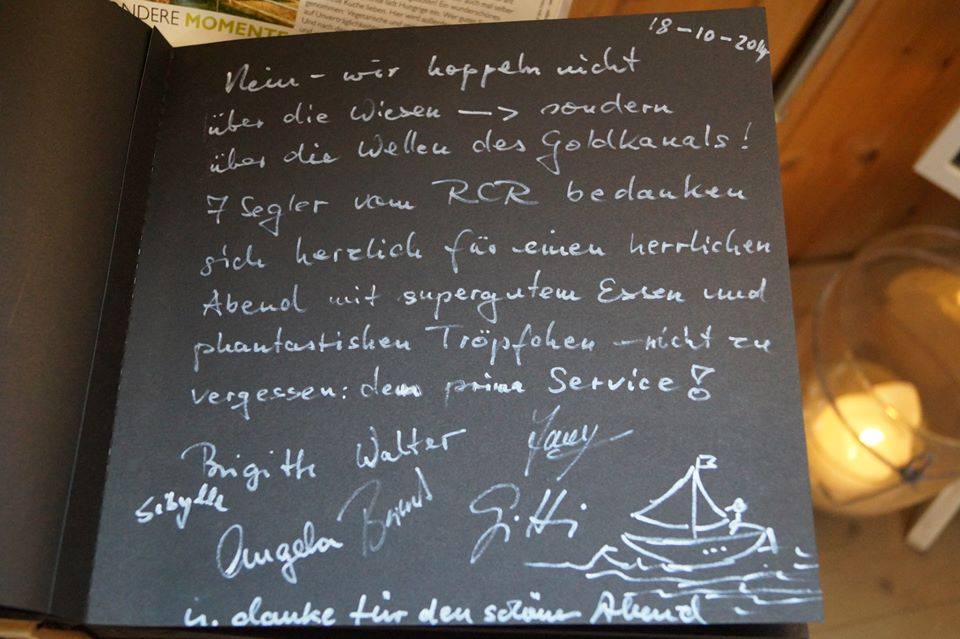 ANDERE MOMENTE
18-10-2014
Nein - wir hoppeln nicht
über die Wiesen —> sondern
über die Wellen des Goldkanals!
7 Segler vom RCR bedanken
sich herzlich für einen herrlichen
Abend mit supergutem Essen und
phantastischen Tröpfchen - nicht zu
vergessen: dem prima Service!
Brigitte Walter
Sibylle
Angela Bernd Gitti
u. danke für den schönen Abend